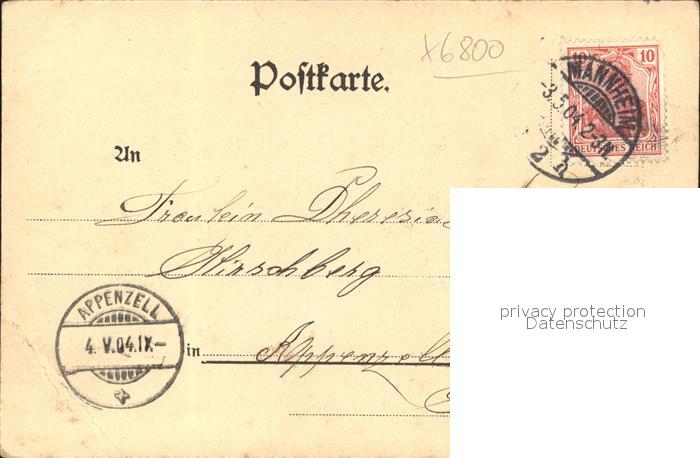 x6800
Postkarte.
10 10
DEUTSCHES REICH
MANNHEIM
-3.5.04. 2-3N
2
An
Fräulein Theresia
Hirschberg
in Appenzell
APPENZELL
4. V. 04. IX-
privacy protection
Datenschutz